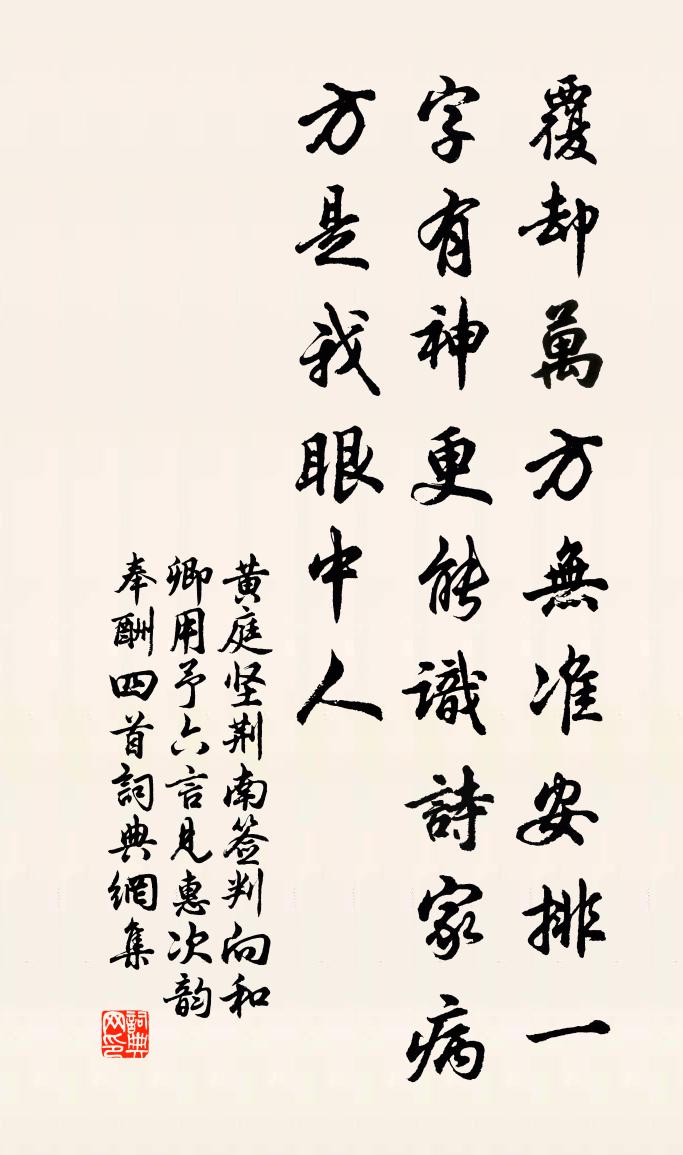 覆却萬方無准安排一
字有神更能識詩家病
方是我眼中人
黄庭坚荆南签判向和
卿用予六言見惠次韵
奉酬四首詞典網集
詞典
网印